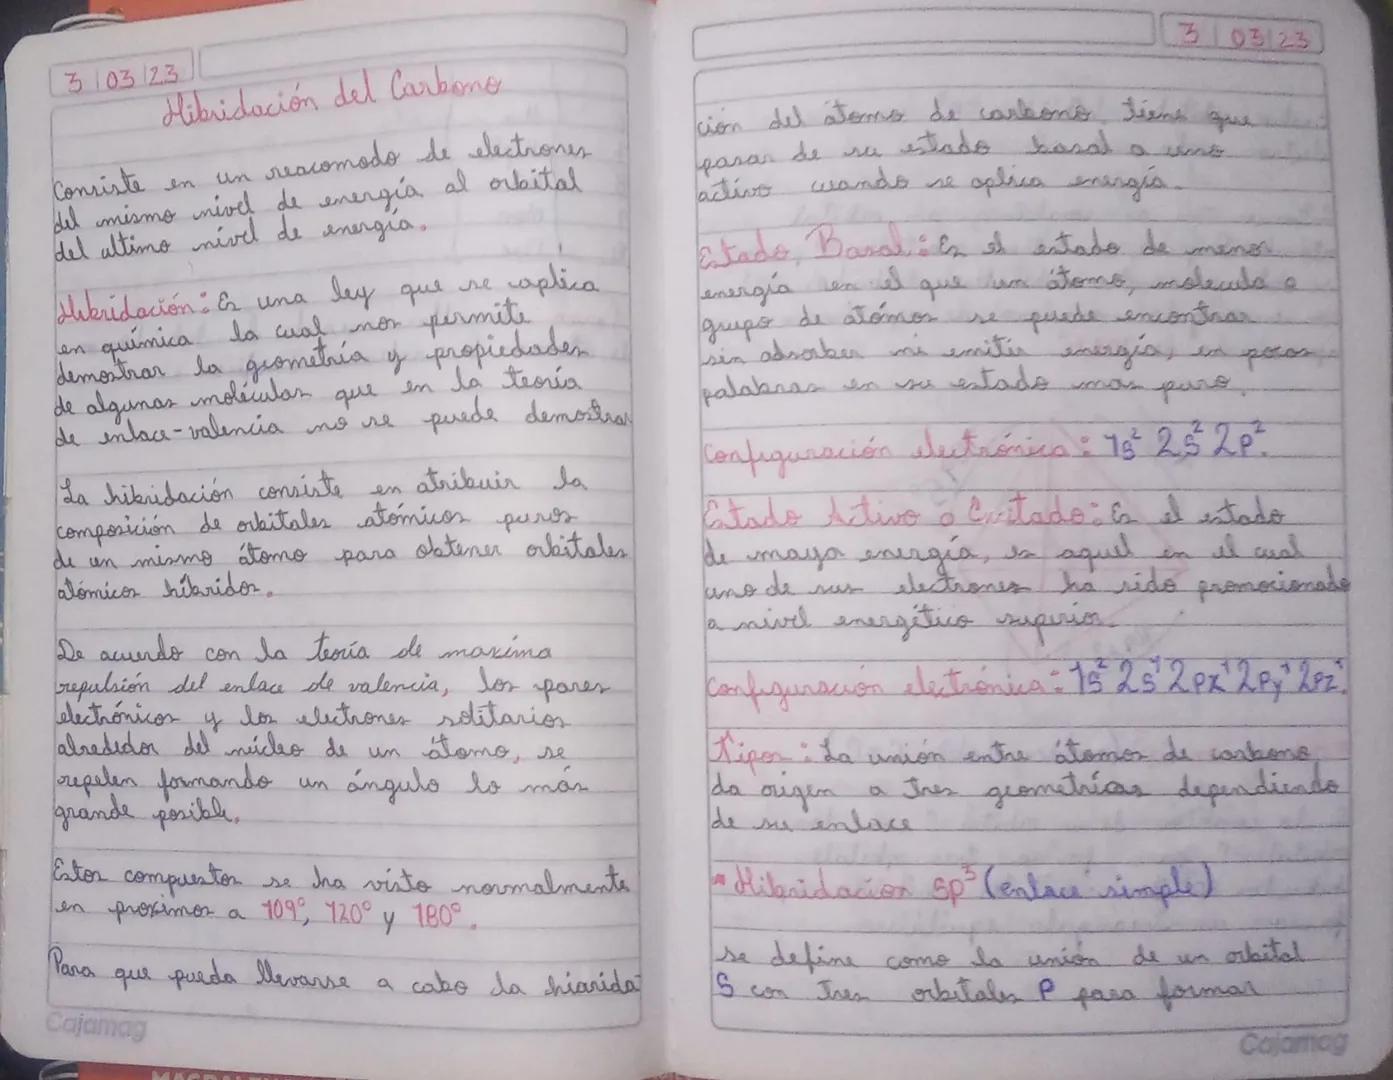 3 03 23
Hibridación del Carbono
Consiste en un reacomodo de electrones
del mismo nivel de energía al orbital
del ultimo nivel de energía.
Hibridación: Es una ley que se aplica
en química la cual nos permite
demostrar la geometría y propiedades
de algunas moléculas que en la teoría
de enlace-valencia no se puede demostrar
La hibridación consiste en atribuir la
composición de orbitales atómicos puros
de un mismo átomo para obtener orbitales
atómicos híbridos.
De acuerdo con la teoría de maxima
repulsión del enlace de valencia, los pares
electrónicos y los electrones solitarios
alrededor del núcleo de un átomo, se
repelen formando un ángulo lo más
grande posible.
Estos compuestos se ha visto normalmente
en proximos a 109°, 120° y 180°.
Para que pueda llevarse a cabo la hiarida
Cajamag
3 03 23
ción del átomo de carbono tiene que
pasar de su estado basal a uno
activo cuando se aplica energía.
Estado Basal: Es el estado de menor
energía en el que un átomo, molecula o
grupo de atómos se puede encontrar
sin absorber ni emitir energía, en pocas
palabras en su estado mas puro.
Configuración electrónica: 1s² 2s² 2p².
Estado Activo o Exitado: Es el estado
de mayor energía, es aquel en el cual
uno de sus electrones ha sido promocionado
a nivel energético superior.
Configuración electrónica: 1s² 2s¹ 2px¹ 2py¹ 2pz¹.
Tipos: La unión entre átomos de carbono
da origen a tres geometrías dependiendo
de su enlace
Hibridación sp³ (enlace simple)
se define como la unión de un orbital
S con tres orbitales P para formar
Cajamag